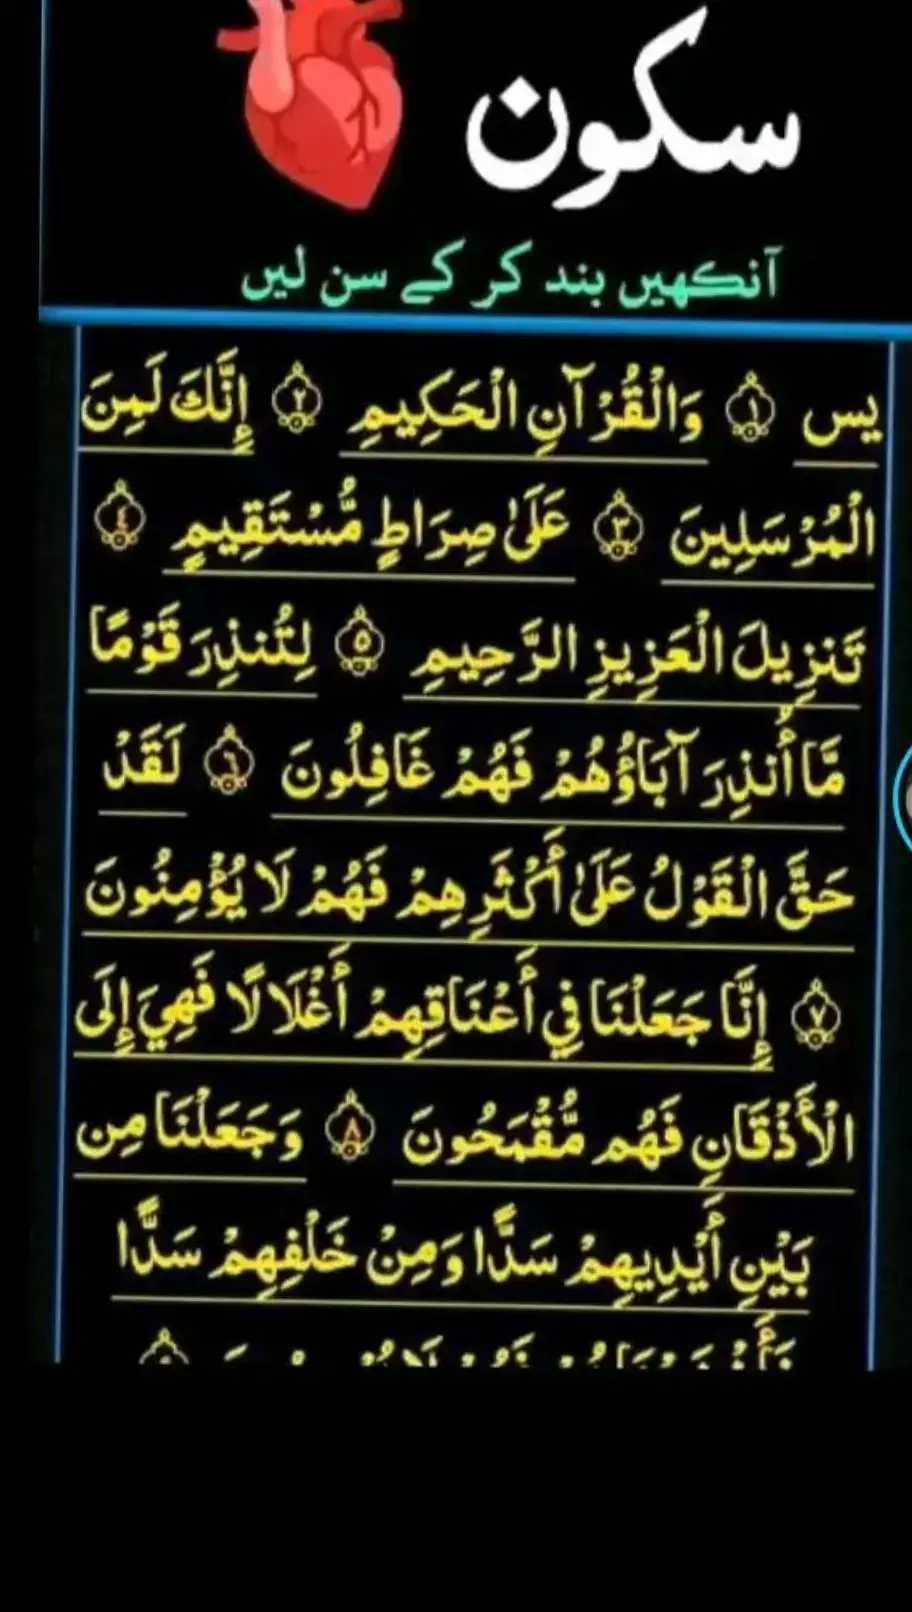 سکون
آنکھیں بند کر کے سن لیں
يس ۝١ وَالْقُرْآنِ الْحَكِيمِ ۝٢ إِنَّكَ لَمِنَ
الْمُرْسَلِينَ ۝٣ عَلَىٰ صِرَاطٍ مُّسْتَقِيمٍ ۝٤
تَنزِيلَ الْعَزِيزِ الرَّحِيمِ ۝٥ لِتُنذِرَ قَوْمًا
مَّا أُنذِرَ آبَاؤُهُمْ فَهُمْ غَافِلُونَ ۝٦ لَقَدْ
حَقَّ الْقَوْلُ عَلَىٰ أَكْثَرِهِمْ فَهُمْ لَا يُؤْمِنُونَ
۝٧ إِنَّا جَعَلْنَا فِي أَعْنَاقِهِمْ أَغْلَالًا فَهِيَ إِلَى
الْأَذْقَانِ فَهُم مُّقْمَحُونَ ۝٨ وَجَعَلْنَا مِن
بَيْنِ أَيْدِيهِمْ سَدًّا وَمِنْ خَلْفِهِمْ سَدًّا